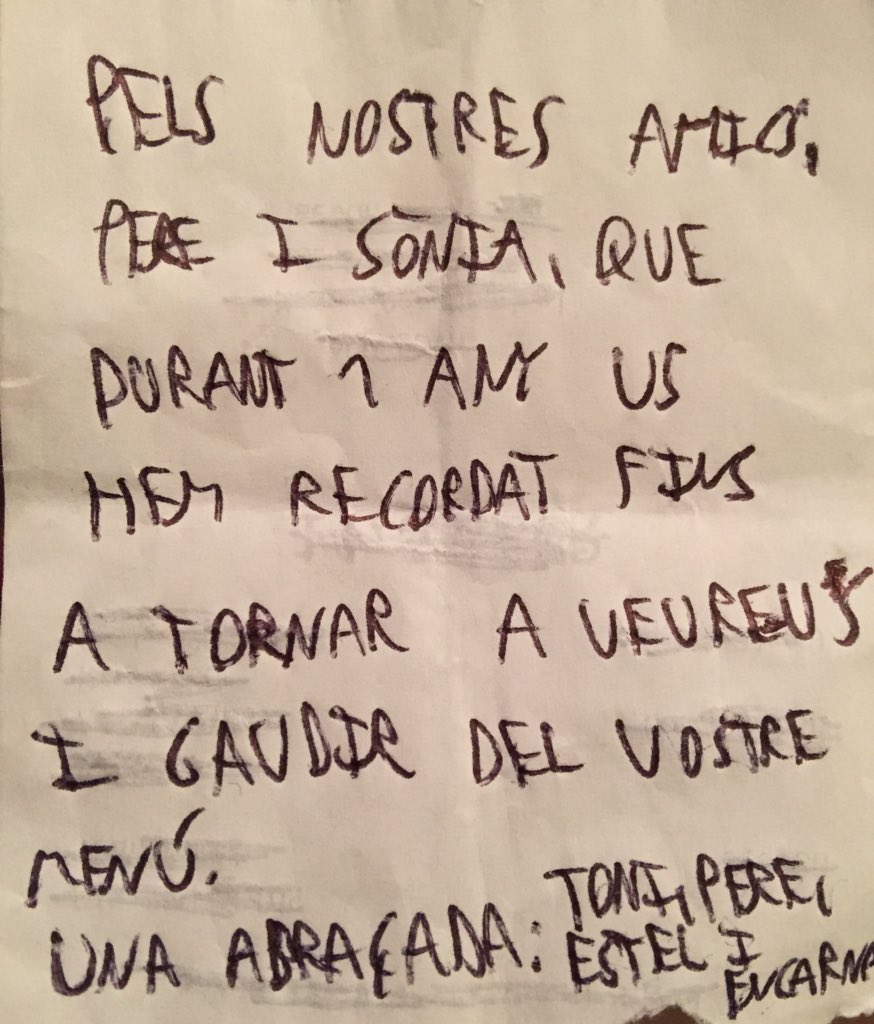 PELS NOSTRES AMICS,
PERE I SÒNIA, QUE
DURANT 1 ANY US
HEM RECORDAT FINS
A TORNAR A VEUREUS
I GAUDIR DEL VOSTRE
MENÚ.
UNA ABRAÇADA: TONI, PERE,
ESTEL I
ENCARNA